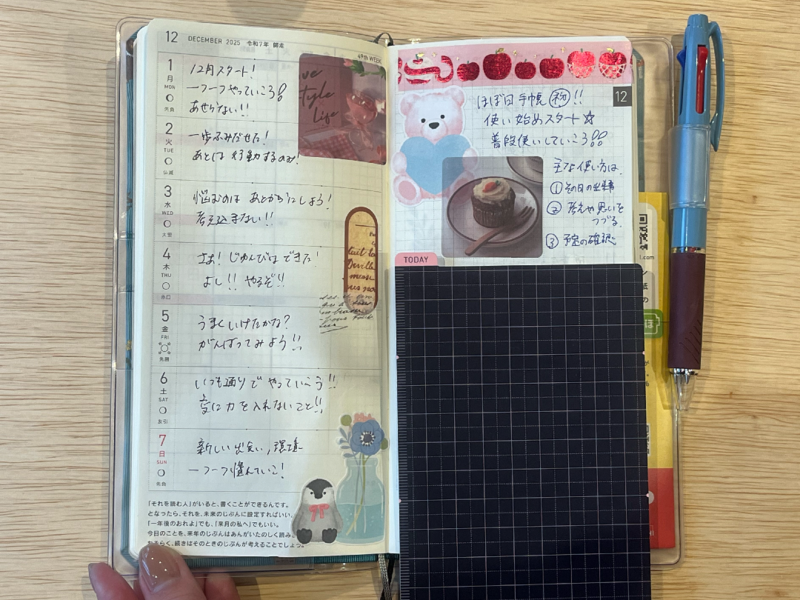 12 DECEMBER 2025 令和7年 師走
49th WEEK
1
月
MON
先負
12月スタート!
一つ一つやっていこう
あせらない!!
2
火
TUE
仏滅
一歩ふみだせた!
あとは 行動するのみ!
3
水
WED
大安
悩むのは あとからにしよう!
考え込まない!!
4
木
THU
赤口
さあ! じゅんびは できた!
よし!! やるぞ!!
5
金
FRI
先勝
うまくいけたかな?
がんばってみよう!!
6
土
SAT
友引
いつも通りで やっていこう!!
変に力を入れないこと!!
7
日
SUN
先負
新しい出会い、環境
一つ一つ進んでいこ!
Style
Life
「それを読む人」がいると、書くことができるんです。
となったら、それを、未来のじぶんに設定すればいい。
「一年後のおれよ」でも、「来月の私へ」でもいい。
今日のことを、来年のじぶんはあんがいたのしく読み、
らく、続きはそのときのじぶんが考えることでしょう。
12
ほぼ日手帳 !!
使い始めスタート☆
普段使いしていこう
主な使い方は、
① その日の出来事
② 考えや思いを
つづる
③ 予定の確認
TODAY